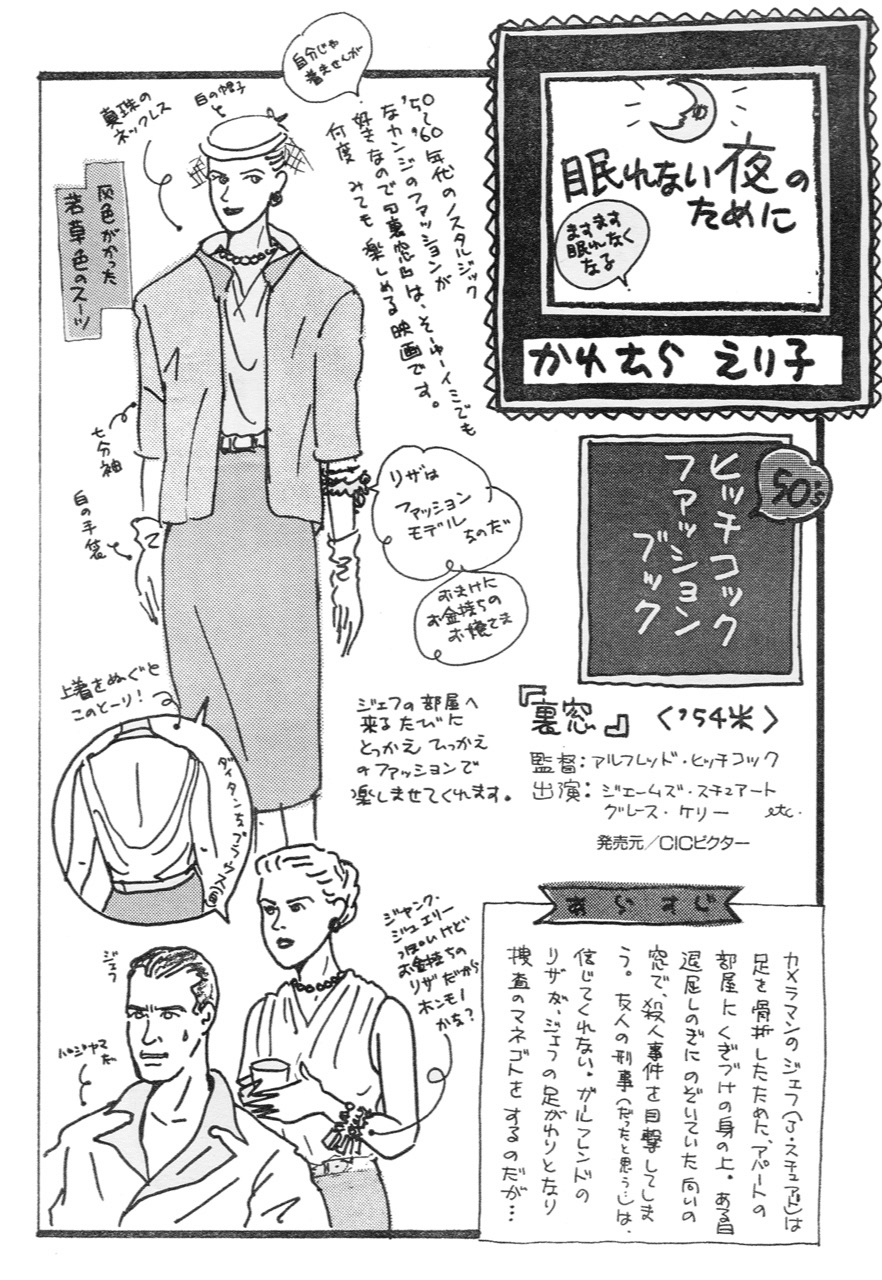 眠れない夜の
ために
ますます
眠れなく
なる
かわさら えり子
50's
ヒッチコック
ファッション
ブック
自分じゃ
着ませんが
'50〜'60年代のノスタルジック
なカンジのファッションが
好きなので『裏窓』は、そーゆーイミでも
何度 みても 楽しめる映画です。
白の帽子
真珠の
ネックレス
灰色がかった
若草色のスーツ
七分袖
白の手袋
リザは
ファッション
モデル
なのだ
おまけに
お金持ちの
お嬢さま
上着をぬぐと
このとーり!
ダイタンなブラウス(画)
ジェフの部屋へ
来るたびに
とっかえ ひっかえ
のファッションで
楽しませてくれます。
『裏窓』〈'54米〉
監督:アルフレッド・ヒッチコック
出演:ジェームズ・スチュアート
グレース・ケリー etc.
発売元/CICビクター
ジャンク・
ジュエリー
っぽいけど
お金持ちの
リザだから
ホンモノ
かな?
ジェフ
パジャマだ
あらすじ
カメラマンのジェフ(J・スチュアート)は
足を骨折したために、アパートの
部屋にくぎづけの身の上。ある日
退屈しのぎにのぞいていた向いの
窓で、殺人事件を目撃してしま
う。友人の刑事(だったと思う)は、
信じてくれない。ガールフレンドの
リザが、ジェフの足がわりとなり
捜査のマネゴトをするのだが…